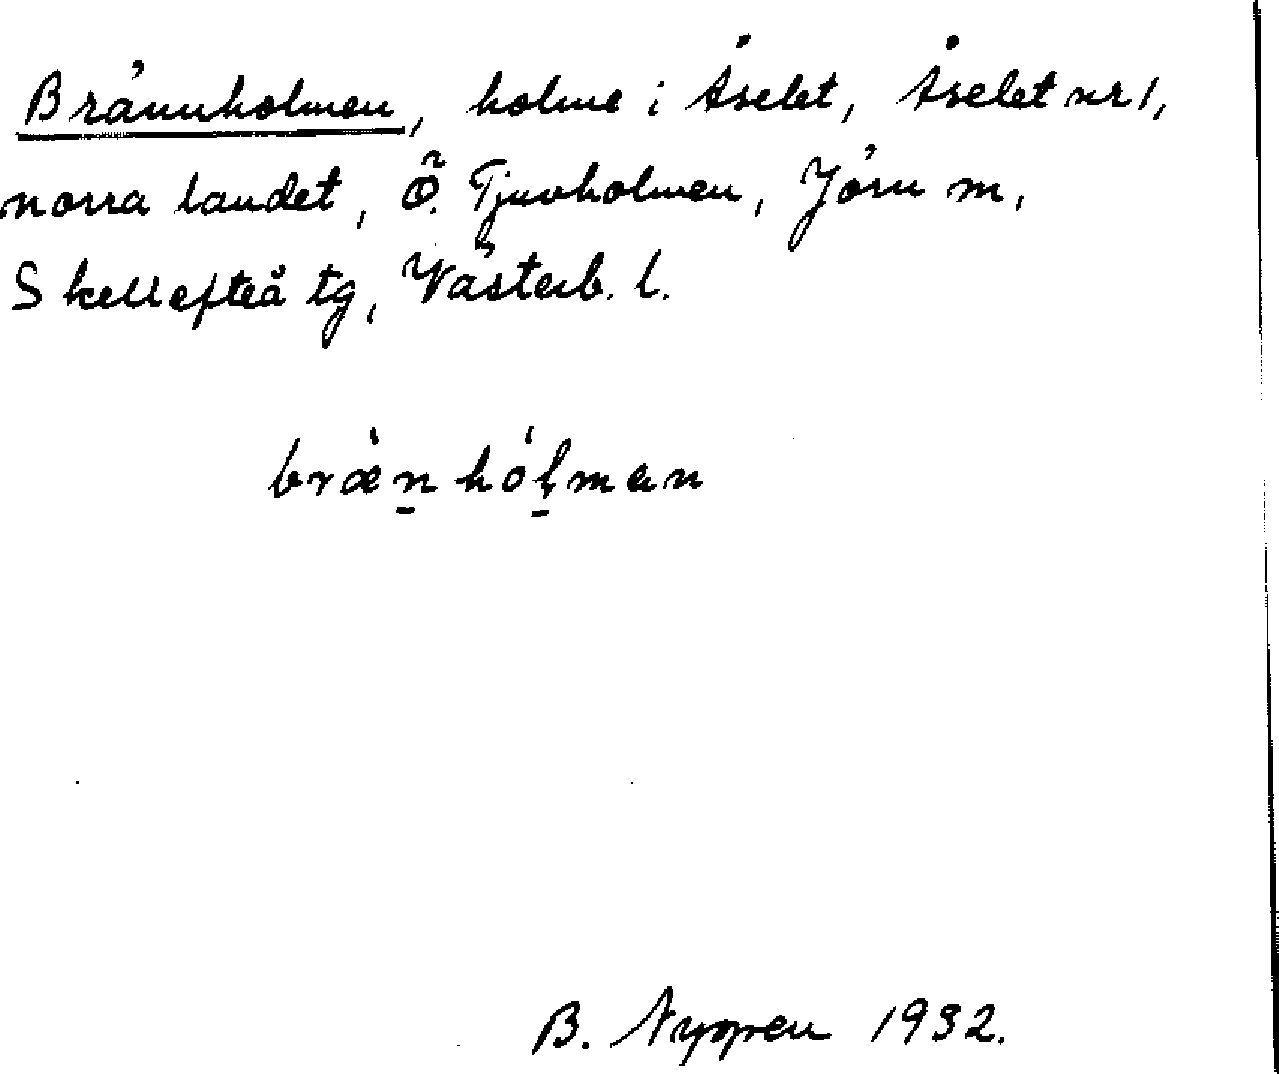 Brännholmen, holme i Åselet, Åselet nr 1,
norra landet, Ö. Tjuvholmen, Jörn m,
Skellefteå tg, Västerb. l.
bræ̀n̠hól̠man
B. Nyppen 1932.